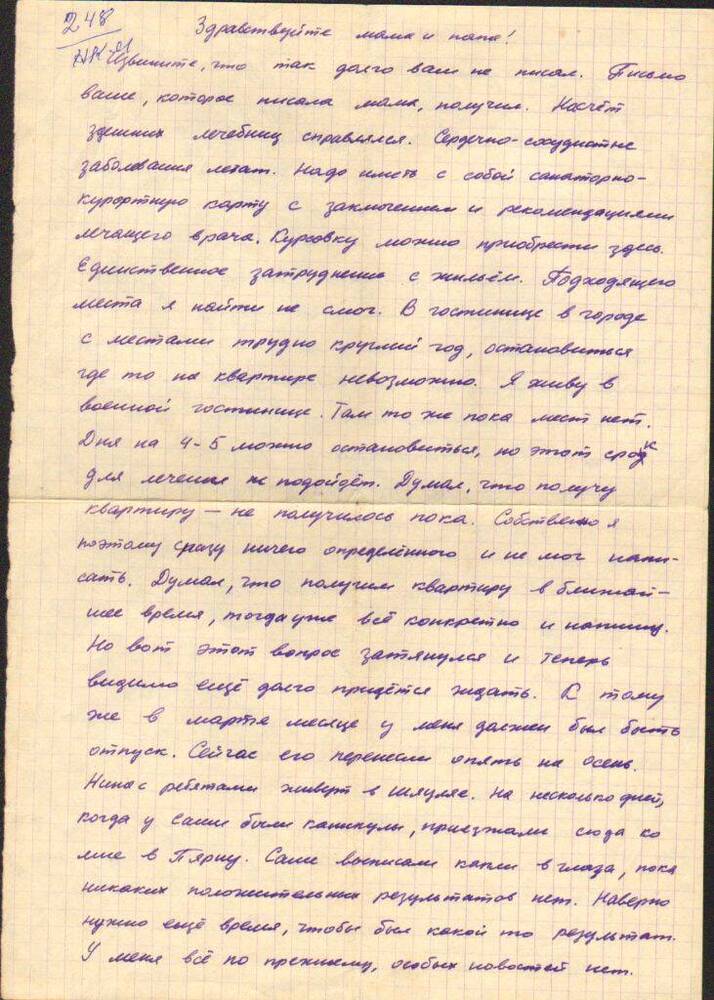 248
НК-91
Здравствуйте мама и папа!
Извините, что так долго вам не писал. Письмо
ваше, которое писала мама, получил. Насчёт
здешних лечебниц справлялся. Сердечно-сосудистые
заболевания лечат. Надо иметь с собой санаторно-
курортную карту с заключением и рекомендациями
лечащего врача. Курсовку можно приобрести здесь.
Единственное затруднение с жильём. Подходящего
места я найти не смог. В гостинице в городе
с местами трудно круглый год, остановиться
где то на квартире невозможно. Я живу в
военной гостинице. Там то же пока мест нет.
Дня на 4-5 можно остановиться, но этот срок
для лечения не подойдёт. Думал, что получу
квартиру — не получилось пока. Собственно я
поэтому сразу ничего определённого и не мог напи-
сать. Думал, что получим квартиру в ближай-
шее время, тогда уже всё конкретно и напишу.
Но вот этот вопрос затянулся и теперь
видимо ещё долго придётся ждать. К тому
же в марте месяце у меня должен был быть
отпуск. Сейчас его перенесли опять на осень.
Нина с ребятами живёт в Шяуляе. На несколько дней,
когда у Саши были каникулы, приезжали сюда ко
мне в Пярну. Саше выписали капли в глаза, пока
никаких положительных результатов нет. Наверно
нужно ещё время, чтобы был какой то результат.
У меня всё по прежнему, особых новостей нет.